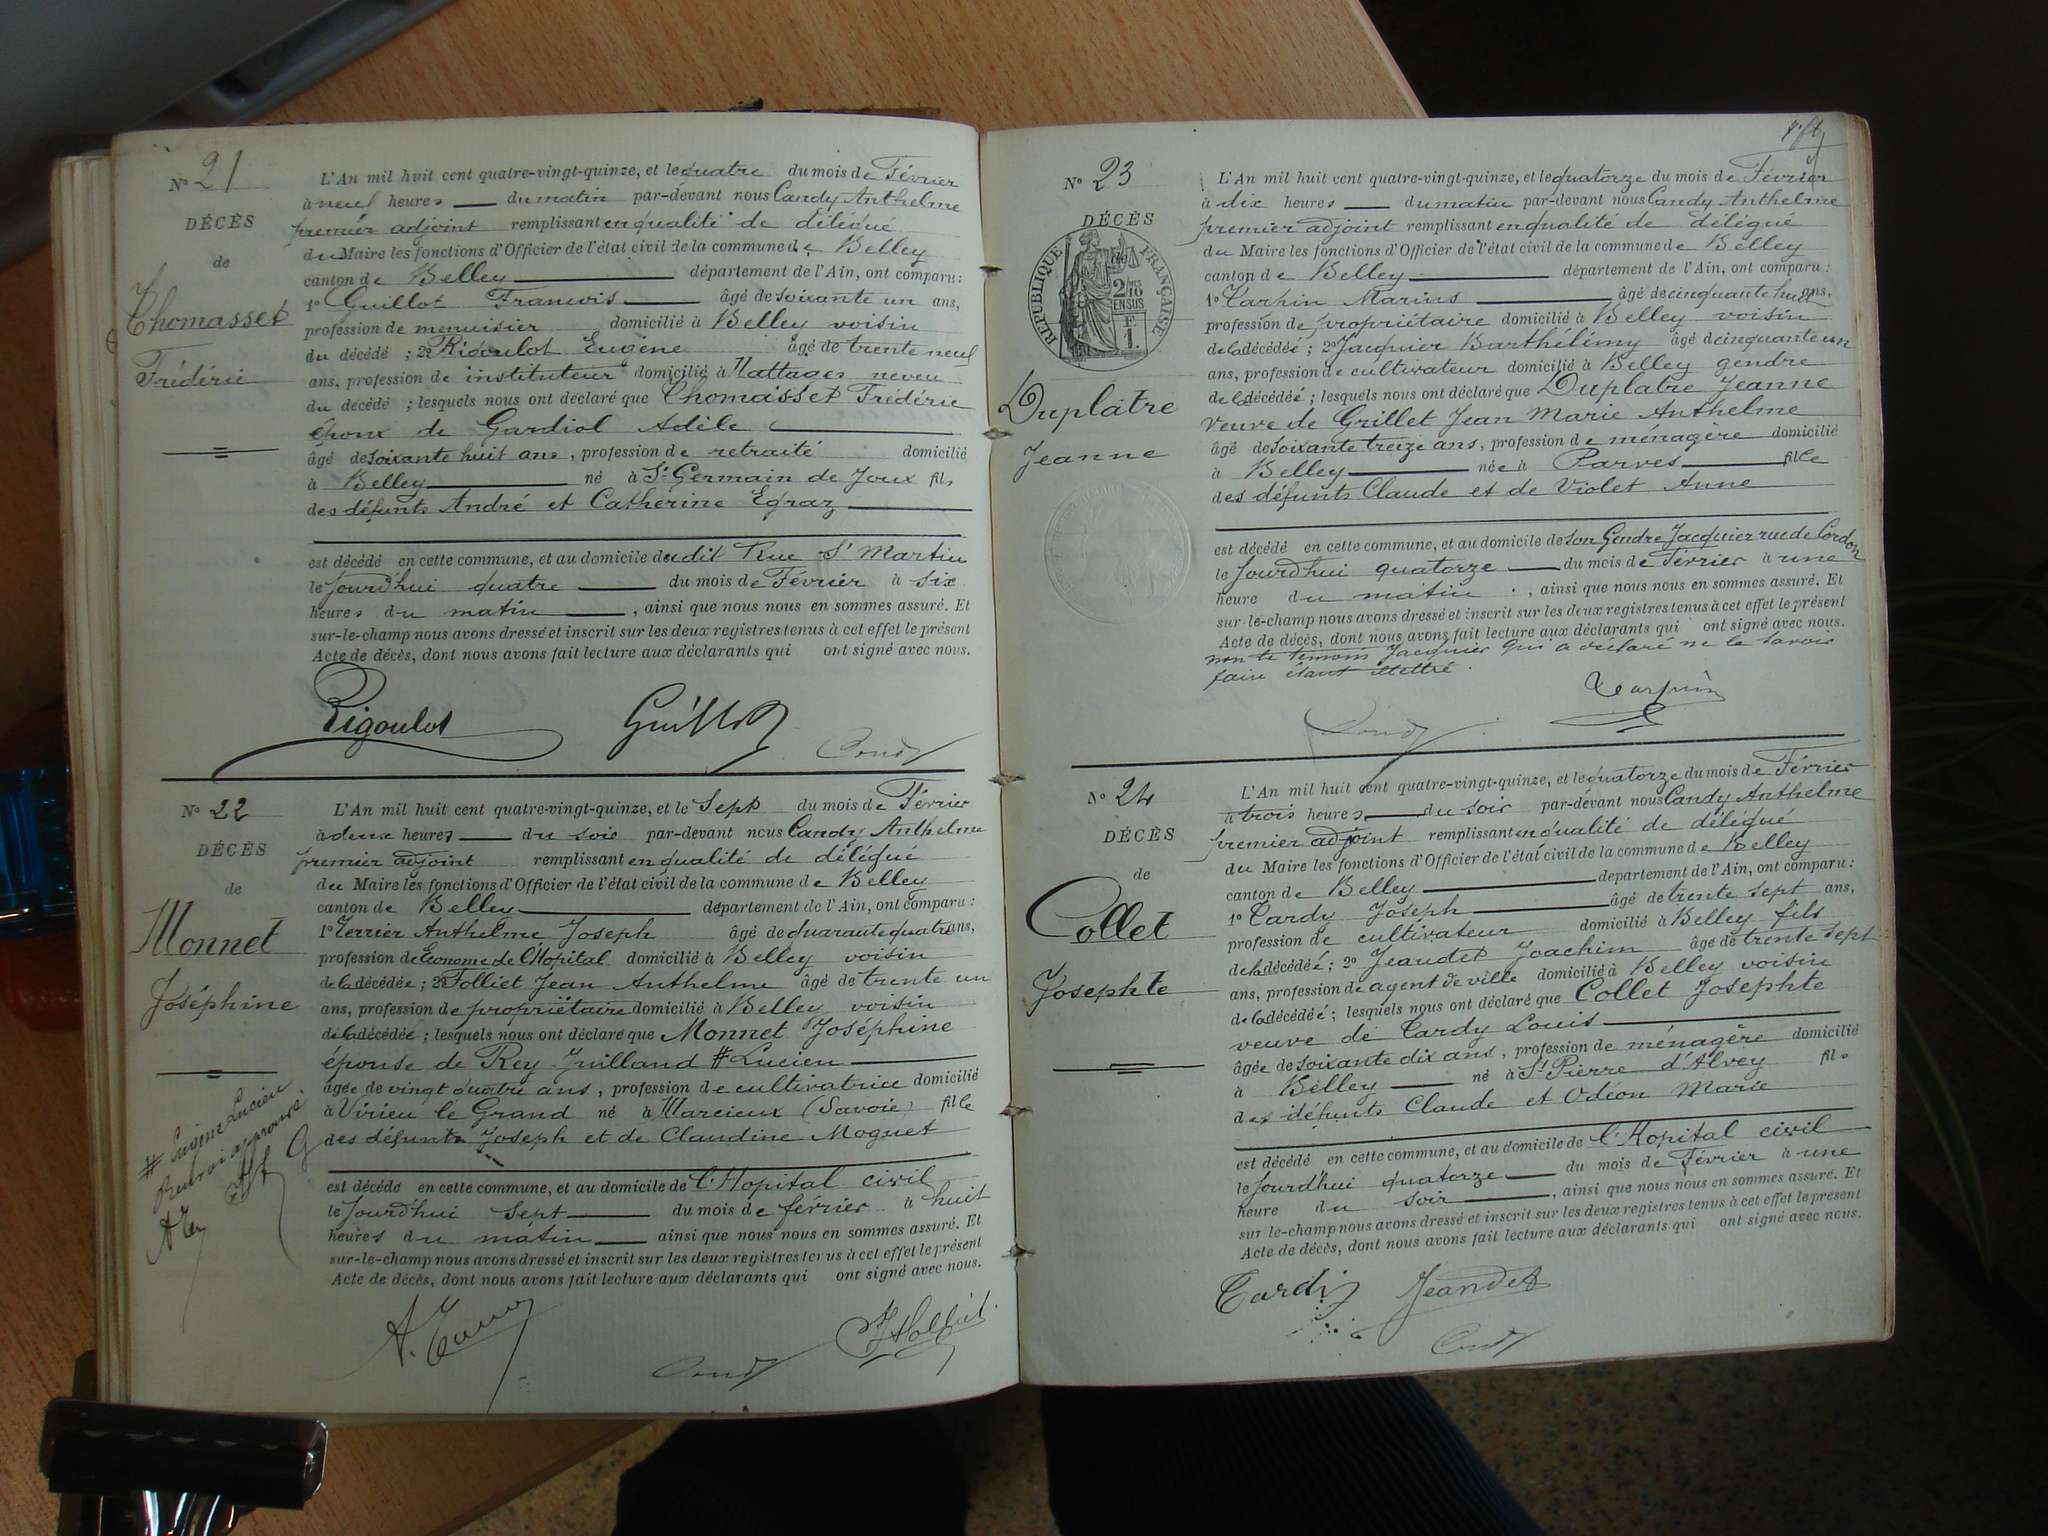 N° 21
DÉCÈS
de
Thomasset
Frédéric
L'An mil huit cent quatre-vingt-quinze, et le quatre du mois de Février
à neuf heures du matin par-devant nous Candy Anthelme
premier adjoint remplissant en qualité de délégué
du Maire les fonctions d'Officier de l'état civil de la commune de Belley
canton de Belley département de l'Ain, ont comparu :
1° Guillot François âgé de soixante un ans,
profession de menuisier domicilié à Belley voisin
du décédé ; 2° Rigoulot Eugène âgé de trente neuf
ans, profession de instituteur domicilié à Nattages neveu
du décédé ; lesquels nous ont déclaré que Thomasset Frédéric
époux de Gardiol Adèle
âgé de soixante huit ans, profession de retraité domicilié
à Belley né à St Germain de Joux fils
des défunts André et Catherine Egraz
est décédé en cette commune, et au domicile dudit Rue St Martin
le jourd'hui quatre du mois de Février à six
heures du matin, ainsi que nous nous en sommes assuré. Et
sur-le-champ nous avons dressé et inscrit sur les deux registres tenus à cet effet le présent
Acte de décès, dont nous avons fait lecture aux déclarants qui ont signé avec nous.
Rigoulot Guillot
Candy
N° 22
DÉCÈS
de
Monnet
Joséphine
# Eugène Lucien
Renvoi approuvé
L'An mil huit cent quatre-vingt-quinze, et le Sept du mois de Février
à deux heures du soir par-devant nous Candy Anthelme
premier adjoint remplissant en qualité de délégué
du Maire les fonctions d'Officier de l'état civil de la commune de Belley
canton de Belley département de l'Ain, ont comparu :
1° Terrier Anthelme Joseph âgé de quarante quatre ans,
profession de Econome de l'Hopital domicilié à Belley voisin
de la décédée ; 2° Folliet Jean Anthelme âgé de trente un
ans, profession de propriétaire domicilié à Belley voisin
de la décédée ; lesquels nous ont déclaré que Monnet Joséphine
épouse de Rey-Juilland # Lucien
agée de vingt quatre ans, profession de cultivatrice domicilié
à Virieu le Grand né à Marcieux (Savoie) fille
des défunts Joseph et de Claudine Moguet
est décédé en cette commune, et au domicile de l'Hopital civil
le jourd'hui sept du mois de février à huit
heures du matin ainsi que nous nous en sommes assuré. Et
sur-le-champ nous avons dressé et inscrit sur les deux registres tenus à cet effet le présent
Acte de décès, dont nous avons fait lecture aux déclarants qui ont signé avec nous.
Candy
N° 23
DÉCÈS
RÉPUBLIQUE FRANÇAISE
2/10 EN SUS
F. 1.
Duplatre
Jeanne
L'An mil huit cent quatre-vingt-quinze, et le quatorze du mois de Février
à dix heures du matin par-devant nous Candy Anthelme
premier adjoint remplissant en qualité de délégué
du Maire les fonctions d'Officier de l'état civil de la commune de Belley
canton de Belley département de l'Ain, ont comparu :
1° Tarpin Marius âgé de cinquante huit ans,
profession de propriétaire domicilié à Belley voisin
de la décédée ; 2° Jacquier Barthélimy âgé de cinquante un
ans, profession de cultivateur domicilié à Belley gendre
de la décédée ; lesquels nous ont déclaré que Duplatre Jeanne
veuve de Grillet Jean Marie Anthelme
âgé de soixante treize ans, profession de ménagère domicilié
à Belley née à Parves fille
des défunts Claude et de Violet Anne
est décédé en cette commune, et au domicile de son Gendre Jacquier rue de Cordon
le jourd'hui quatorze du mois de Février à une
heure du matin, ainsi que nous nous en sommes assuré. Et
sur-le-champ nous avons dressé et inscrit sur les deux registres tenus à cet effet le présent
Acte de décès, dont nous avons fait lecture aux déclarants qui ont signé avec nous.
non le temoin Jacquier qui a déclaré ne le savoir
faire étant illettré.
Tarpin
Candy
N° 24
DÉCÈS
de
Collet
Josephte
L'An mil huit cent quatre-vingt-quinze, et le quatorze du mois de Février
à trois heures du soir par-devant nous Candy Anthelme
premier adjoint remplissant en qualité de délégué
du Maire les fonctions d'Officier de l'état civil de la commune de Belley
canton de Belley département de l'Ain, ont comparu :
1° Tardy Joseph âgé de trente sept ans,
profession de cultivateur domicilié à Belley fils
de la décédée ; 2° Jeandet Joachim âgé de trente sept
ans, profession de agent de ville domicilié à Belley voisin
de la décédée ; lesquels nous ont déclaré que Collet Josephte
veuve de Tardy Louis
âgée de soixante dix ans, profession de ménagère domicilié
à Belley né à St Pierre d'Alvey fil
des défunts Claude et Odéon Marie
est décédé en cette commune, et au domicile de l'Hopital civil
le jourd'hui quatorze du mois de Février à une
heure du soir, ainsi que nous nous en sommes assuré. Et
sur-le-champ nous avons dressé et inscrit sur les deux registres tenus à cet effet le présent
Acte de décès, dont nous avons fait lecture aux déclarants qui ont signé avec nous.
Tardy Jeandet
Candy